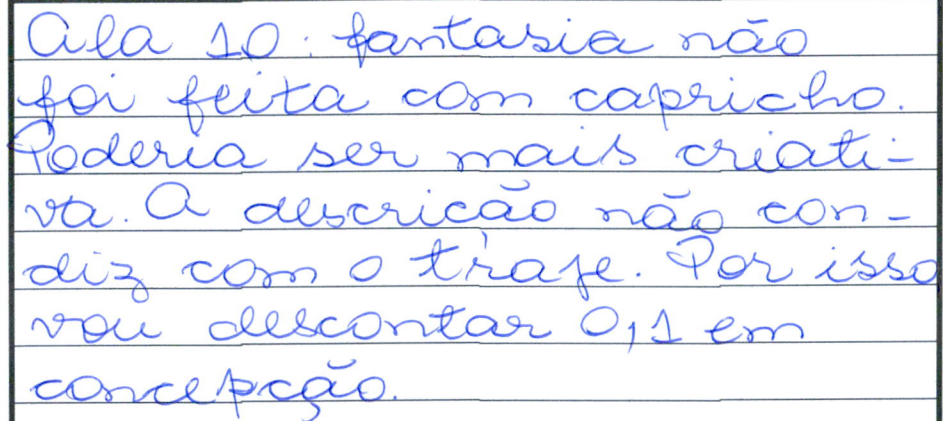 Ala 10: fantasia não
foi feita com capricho.
Poderia ser mais criati-
va. A descricão não con-
diz com o traje. Por isso
vou descontar 0,1 em
concepção.